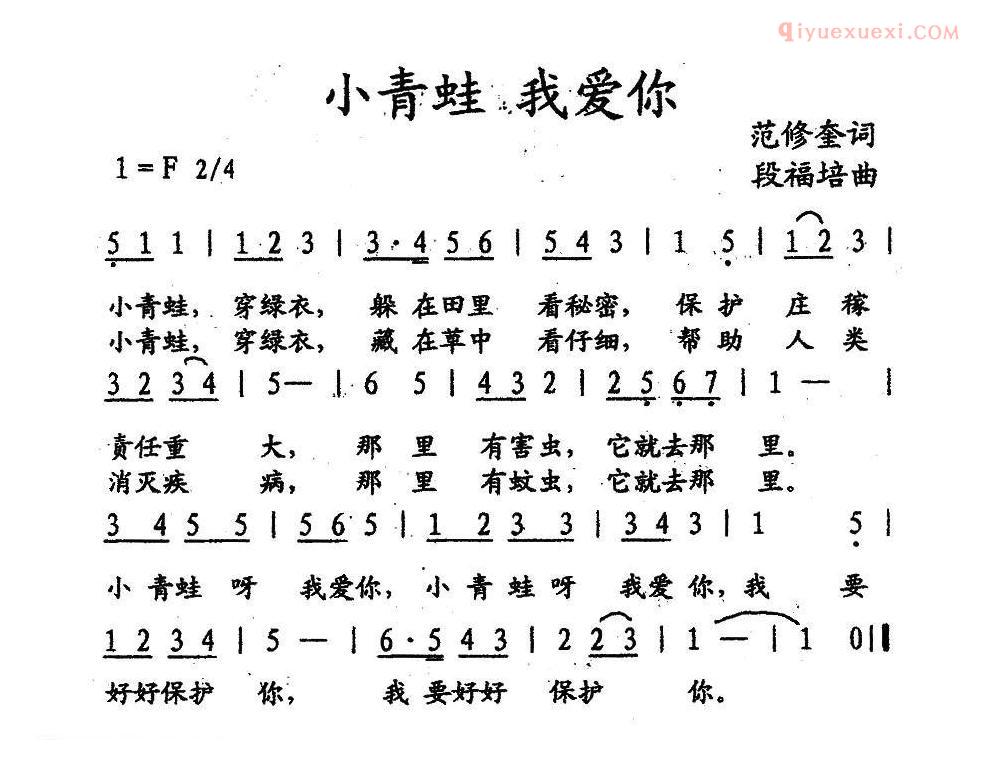 qiyuexuexi.COM
小青蛙 我爱你
范修奎词
1=F 2/4
段福培曲
5 1 1 | 1 2 3 | 3·4 5 6 | 5 4 3 | 1 5 | 1 2 3 |
小青蛙，穿绿衣，躲在田里 看秘密，保护 庄稼
小青蛙，穿绿衣，藏在草中 看仔细，帮助 人类
3 2 3 4 | 5— | 6 5 | 4 3 2 | 2 5 6 7 | 1 — |
责任重 大，那 里 有害虫，它就去那 里。
消灭疾 病，那 里 有蚊虫，它就去那 里。
3 4 5 5 | 5 6 5 | 1 2 3 3 | 3 4 3 | 1 5 |
小青蛙呀 我爱你，小青蛙呀 我爱你，我 要
1 2 3 4 | 5 — | 6·5 4 3 | 2 2 3 | 1 — | 1 0 ||
好好保护 你，我要好好 保护 你。